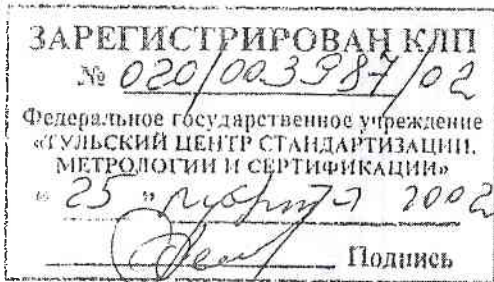 ЗАРЕГИСТРИРОВАН КЛП
№ 020/003987/02
Федеральное государственное учреждение
«ТУЛЬСКИЙ ЦЕНТР СТАНДАРТИЗАЦИИ,
МЕТРОЛОГИИ И СЕРТИФИКАЦИИ»
« 25 » марта 2002
Подпись